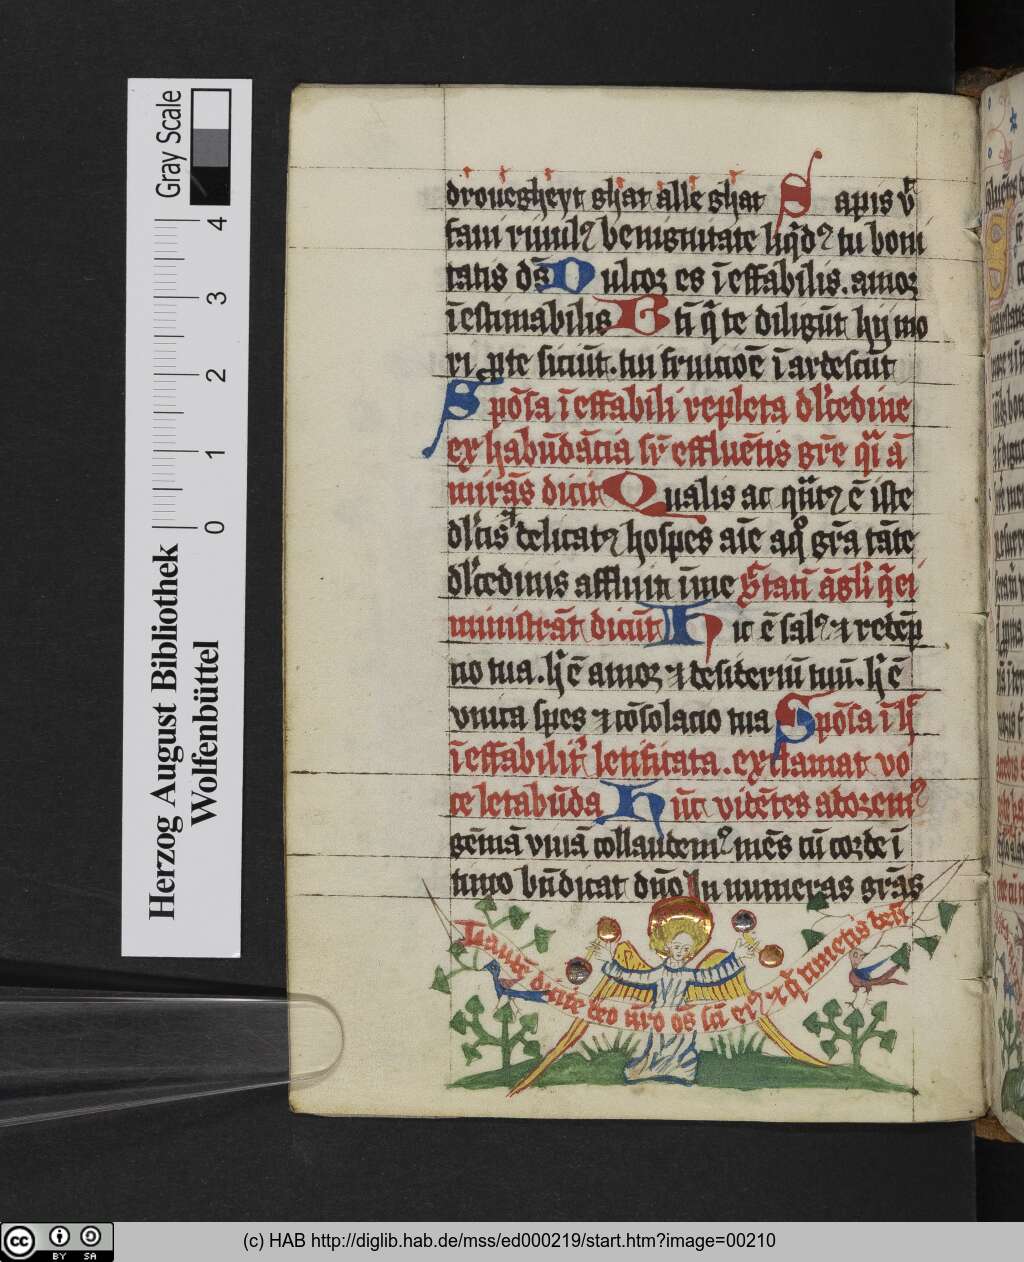 Gray Scale
4
3
2
1
0
Herzog August Bibliothek
Wolfenbüttel
drouegheyt ghat alle ghat Sapis v̄
tatis dn̄s Dulcor es īeffabilis. amor
īestimabilis Et ti q̄ te diligūt hīj mo
ri p̱te siciūt. tui fruicōē īardescūt
Spōsa īeffabili repleta dl̓cedine
ex habūdācia sr̄ effluētis gr̄e q̓i ā
mirās dicit Qualis ac qūtꝰ ē iste
dl̓cis delicatꝰ hospes aīe aq̊ gr̄a tāte
dl̓cedinis affluit īme Statī āgl̓i q̄ ei
ministrāt dicūt Hic ē salꝰ ⁊ redēp̄
cio tua. hͥ ē amor ⁊ desideriū tuū. hͥ ē
vnica spes ⁊ cōsolacio tua Spōsa ī hͦ
īeffabilit̓ letificata. exclamat vo
ce letabūda Hūc vidētes adoremꝰ
gēmā vnā collaudemꝰ mēs cū corde ī
timo bn̄dicat dn̄o In numeras gr̄as
dicite deo nr̄o oēs sc̄i eiꝰ ⁊ q̓ timetis
(c) HAB http://diglib.hab.de/mss/ed000219/start.htm?image=00210
cc
BY SA